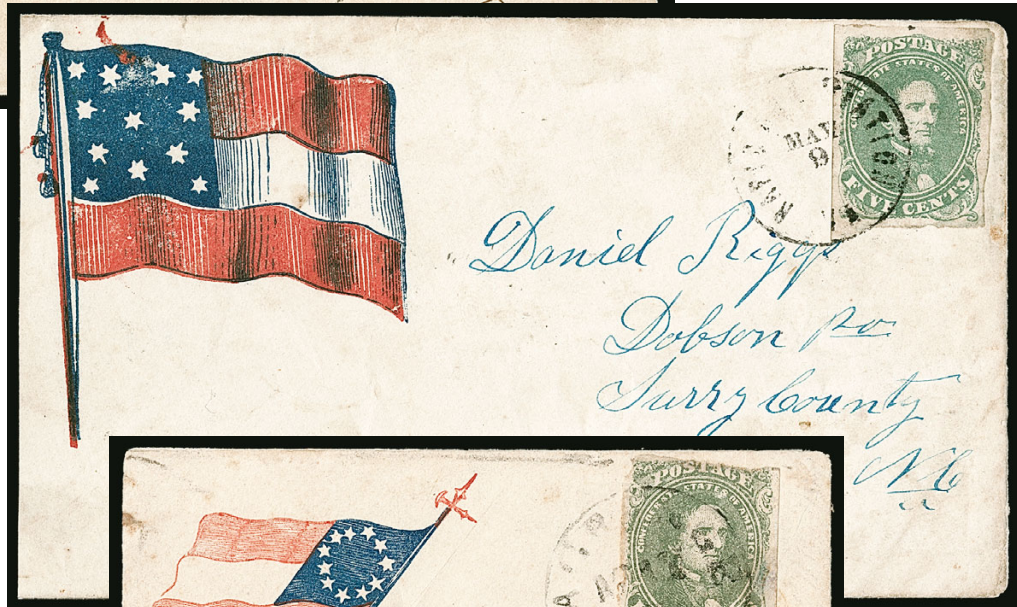 POSTAGE
CONFEDERATE STATES OF AMERICA
FIVE CENTS
MAY
9
VA.
Daniel Riggs
Dobson PO
Surry County
NC
POSTAGE
CONFEDERATE STATES OF AMERICA